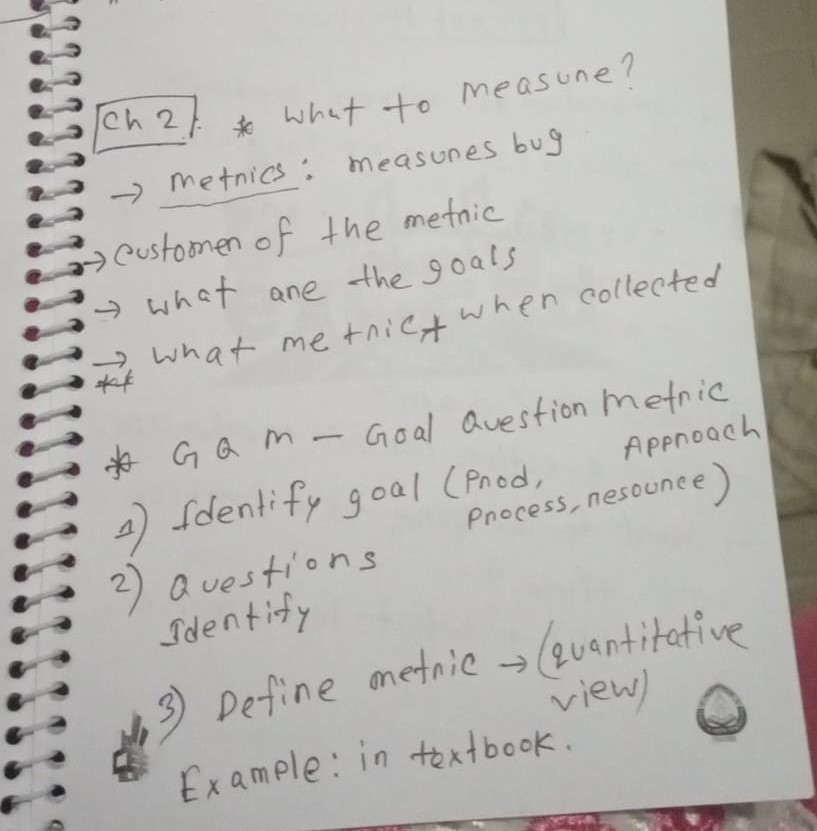 Ch 2 * What to measure?
→ Metrics: measures bug
→ customer of the metric
→ what are the goals
→ what metrict when collected
**
* G Q M - Goal Question Metric
Approach
1) Identify goal (Prod,
Process, resource)
2) Questions
Identify
3) Define metric → (quantitative
view)
Example: in textbook.